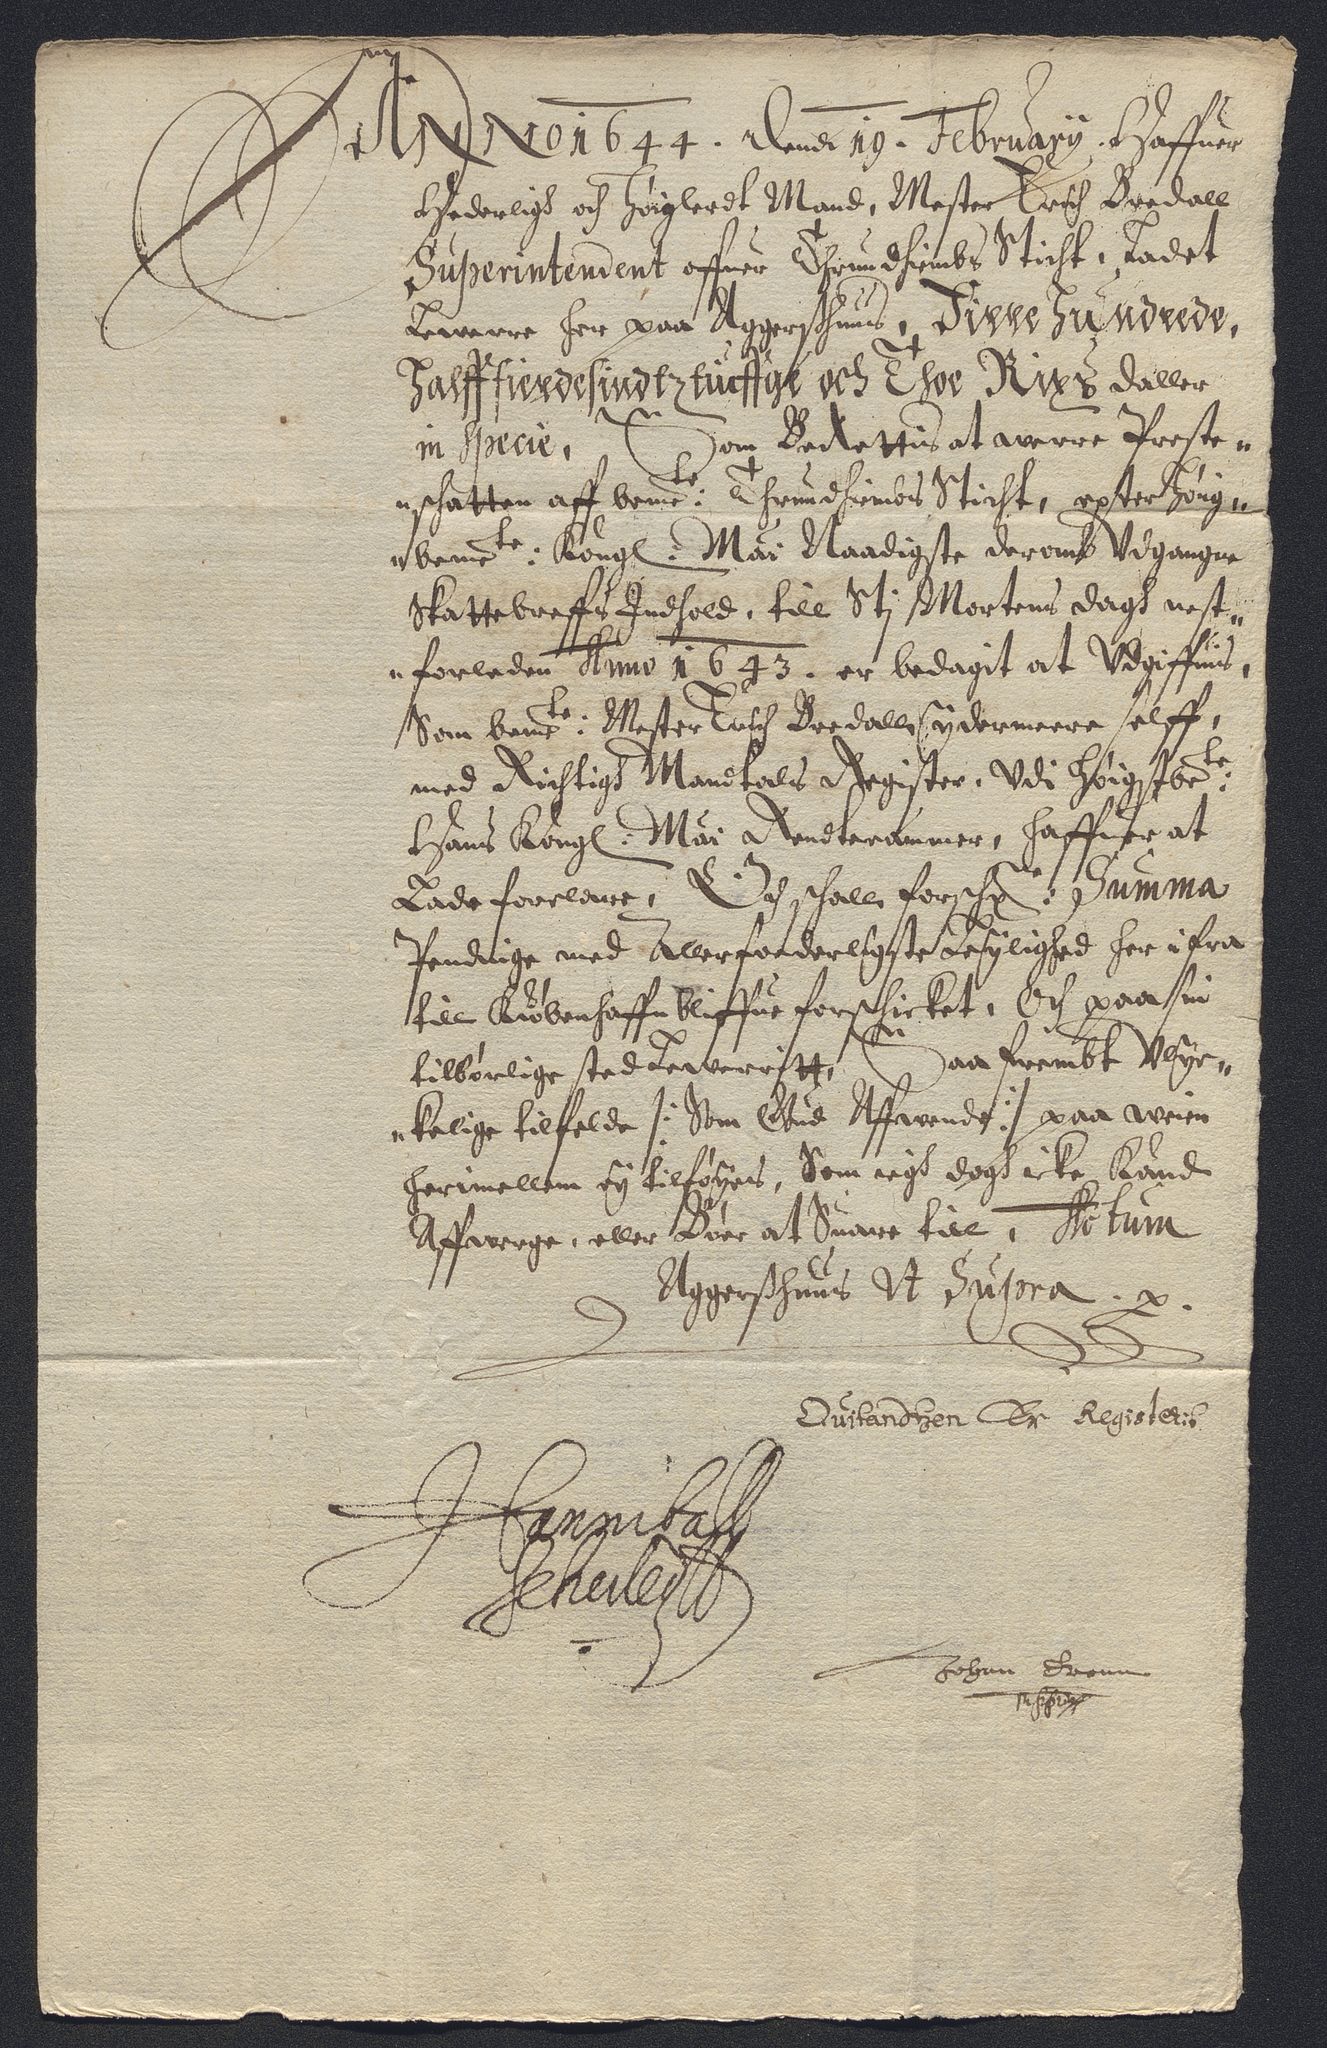 ANNO 1644. Dend 19. February. Haffuer
Hederligh och Høiglerdt Mand, Mester Erich Bredall
Superintendent offuer Thrundhiembs Sticht, Ladet
Leverre her paa Aggershuus, Firre Hundrede,
Halfffierdesindtztiuffge och Thoe Rixs daller
in specie, Som Berettis at werre Preste„
„schatten aff bemte: Thrundhiembs Sticht, epter Høig„
„bemte: Kongl: Maii Naadigste deromb Udgangne
Skattebreffs Indhold, till Stj Mortens dagh nest„
„forleden Anno 1643. er bedagit at Udgiffuis,
Som bemte: Mester Erich Bredall sydermeere selff,
med Richtigh Mandtals Register, Udi Høigstbete:
Hans Kongl: Maii Rendtecammer, haffuer at
Lade forclare, Och schall forschne: Summa
Pendinge med Allerforderligste Leylighed her ifra
till Kiøbenhaffn bliffue forschicket, Och paa sin
tilbørlige sted Leverritt, Saa frembt Ulyc„
„kelige tilfelde /: Som Gud Affwende :/ paa weien
herimellem ey tilføyes, Som iegh dogh icke Kand
Affwerge, eller Bøer at Suare till, Actum
Aggershuus Ut Supra. p.
Quitandtzen Er Registerit
Hanniball
Sehested
Johan